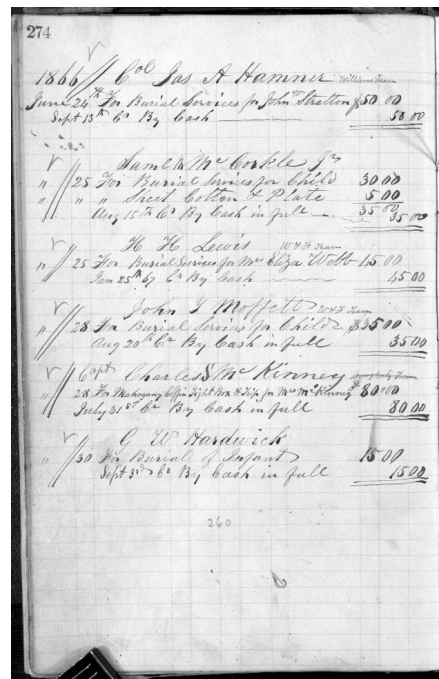 274
1866 Col Jas A Hamner Williams Team
June 24th For Burial Services for John W Stratton $50 00
Sept 13th Cr By Cash 50 00
Saml R Mc Corkle Jr
" 25 For Burial Services for Child 30 00
" " Sheet Cotton & Plate 5 00
35 00
Aug 15th Cr By Cash in full 35 00
H H Lewis W & F Team
" 25 For Burial Services for Mrs Eliza Webb 45 00
Jan 25th 67 Cr By Cash 45 00
John T Moffett W & F Team
" 28 For Burial Services for Child $35 00
Aug 20th Cr By Cash in full 35 00
Capt Charles S Mc Kinney
" 28 For Mahogany Coffin Tight Box & Tips for Mrs McKinney $80 00
July 31st Cr By Cash in full 80 00
G W Hardwick
" 30 For Burial of Infant 15 00
Sept 3rd Cr By Cash in full 15 00
260